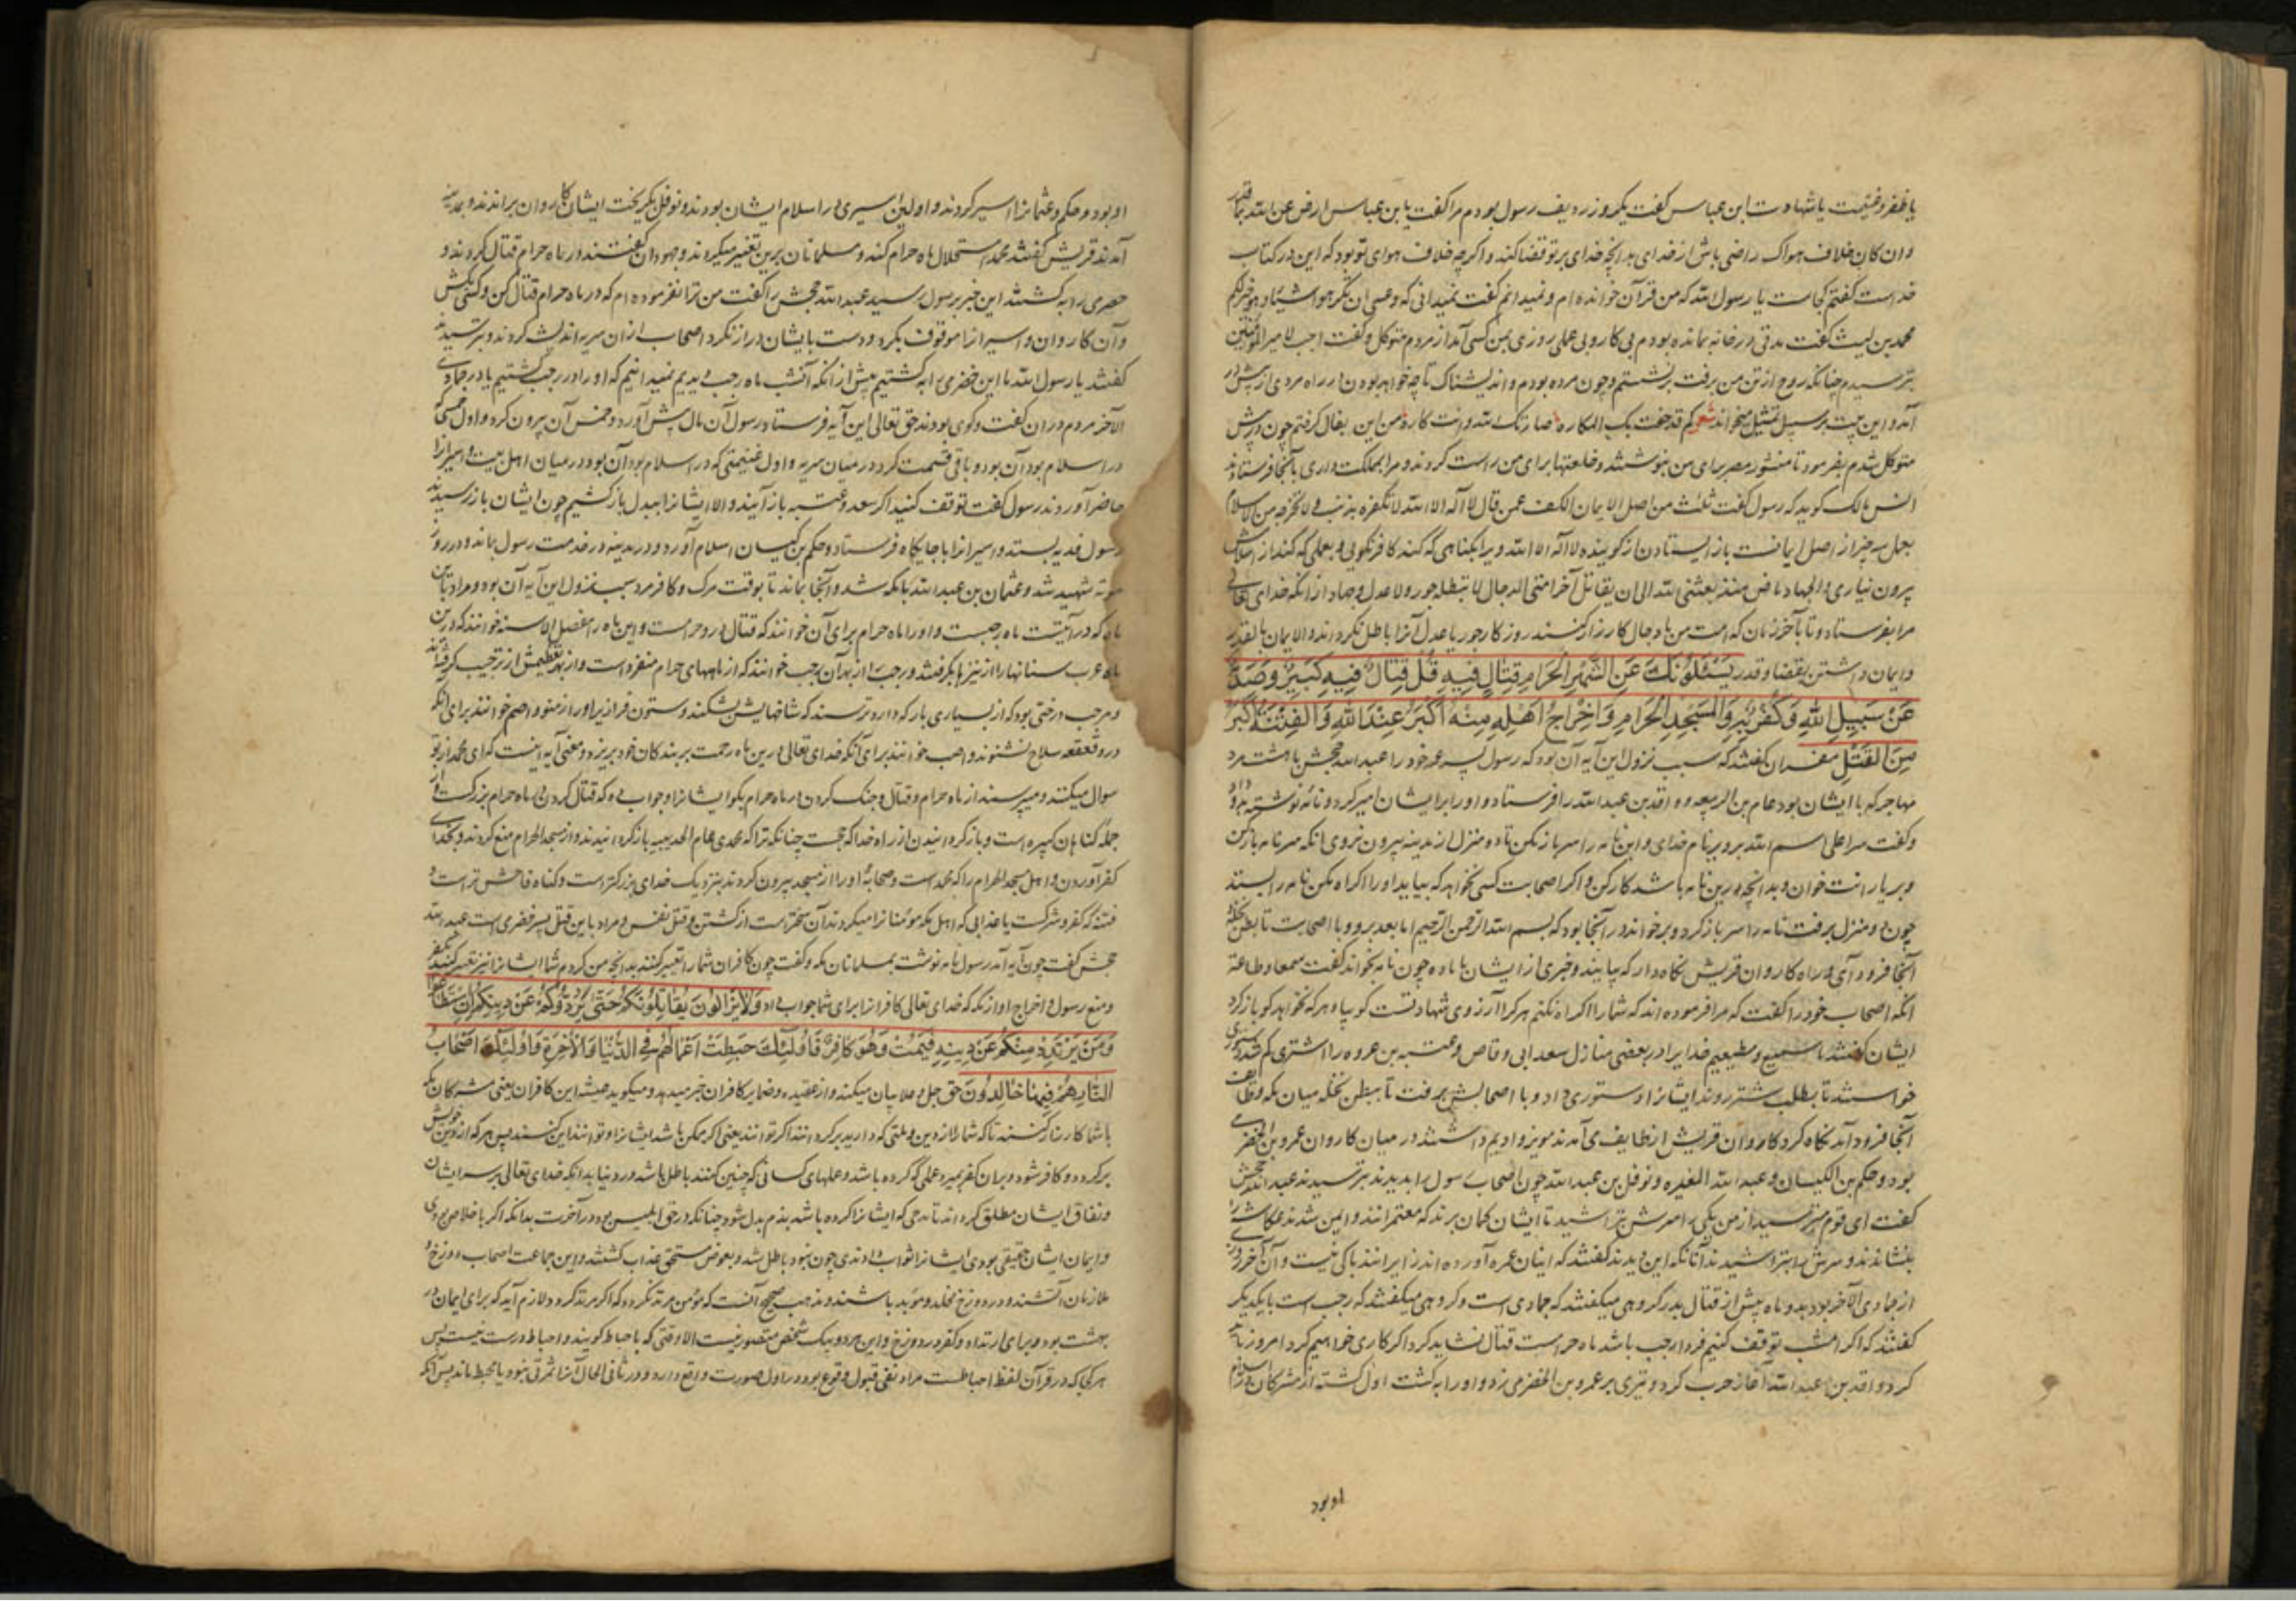 یا ظفر و غنیمت یا شهادت ابن عباس گفت یکروز ردیف رسول بودم مرا گفت یا بن عباس ارض عن الله بما قدر
وان کان خلاف هواک راضی باش از خدای بدانچه خدای بر تو قضا کند و اگرچه خلاف هوای تو بود که این در کتاب
خداست گفتم کجاست یا رسول الله که من قرآن خوانده ام و نمیدانم گفت نمیدانی که وعسی ان تکرهوا شیئا وهو خیر لکم
محمد بن لیث گفت مدتی در خانه بمانده بودم بی کار و بی عمل روزی بمن کسی آمد از مردم متوکل و گفت اجب لامیر المؤمنین
بترسیدم چنانکه روح از تن من برفت برنشستم و چون مرده بودم و اندیشناک تا چه خواهد بودن در راه مردی از پیش در
آمد و این بیت بر سبیل تمثیل میخواند شعر کم قد حفت بک المکاره خار لک الله وانت کاره من این بفال گرفتم چون در پیش
متوکل شدم بفرمود تا منشور مصر برای من بنوشتند و خلعتها برای من راست کردند و مرا بمملکت داری بآنجا فرستادند
انس مالک گوید که رسول گفت ثلث من اصل الایمان الکف عمن قال لا اله الا الله لا تکفره بذنب ولا تخرجه من الاسلام
بعمل سه چیز از اصل ایمانست باز ایستادن از گوینده لا اله الا الله و یرا بگناهی که کند کافر نگویی و بعملی که کند از اسلامش
بیرون نیاری والجهاد ماض منذ بعثنی الله الی ان یقاتل آخر امتی الدجال لا یبطله جور ولا عدل و جهاد از آنکه خدای تعالی
مرا بفرستاد و تا بآخر زمان که امت من با دجال کارزار کنند روز کار جور یا عدل آنرا باطل نکرداند والایمان بالقدر
و ایمان داشتن بقضا و قدر یَسْئَلُونَكَ عَنِ الشَّهْرِ الْحَرَامِ قِتَالٍ فِیهِ قُلْ قِتَالٌ فِیهِ كَبِیرٌ وَصَدٌّ
عَنْ سَبِیلِ اللّٰهِ وَكُفْرٌ بِهِ وَالْمَسْجِدِ الْحَرَامِ وَاِخْرَاجُ اَهْلِهِ مِنْهُ اَكْبَرُ عِنْدَ اللّٰهِ وَالْفِتْنَةُ اَكْبَرُ
مِنَ الْقَتْلِ مفسران گفتند که سبب نزول این آیه آن بود که رسول پسر عمه خود را عبد الله جحش با هشت مرد
مهاجر که با ایشان بود عامر بن الربیعه و واقد بن عبد الله را فرستاد و او را بر ایشان امیر کرد و نامه نوشته بدو داد
و گفت سر علی اسم الله برو بر نام خدای و این نامه را سر باز مکن تا دو منزل از مدینه بیرون نروی آنکه سر نامه باز کن
و بر یارانت خوان و بدانچه درین نامه باشد کار کن و اگر اصحابت کسی نخواهد که بیاید او را اکراه مکن نامه را بستد
چون دو منزل برفت نامه را سر باز کرد و برخواند در آنجا بود که بسم الله الرحمن الرحیم اما بعد برو با اصحابت تا بطن نخله
آنجا فرود آی و راه کاروان قریش نگاه دار که بیایند و خبری از ایشان بما ده چون نامه بخواند گفت سمعا وطاعة
آنکه اصحاب خود را گفت که مرا فرموده اند که شما را اکراه نکنم هر کرا آرزوی شهادتست کو بیا و هر که نخواهد کو باز گرد
ایشان گفتند ما سمیع و مطیعیم خدایرا در بعضی منازل سعد ابی وقاص و عتبه بن عروه را اشتری کم شد دستوری
خواستند تا بطلب شتر روند ایشانرا دستوری داد و با اصحابش برفت تا ببطن نخله میان مکه و طایف
آنجا فرود آمد نگاه کرد کاروان قریش از طایف می آمدند مویز و ادیم داشتند در میان کاروان عمرو بن الخضرمی
بود و حکم بن الکیسان و عبد الله المغیره و نوفل بن عبد الله چون اصحاب رسول را بدیدند بترسیدند عبد الله جحش
گفت ای قوم بترسید از من یکی را سرش بتراشید تا ایشان گمان برند که معتمرانند و ایمن شدند عکاشه را
بنشاندند و سرش را بتراشیدند آنانکه این دیدند گفتند که اینان عمره آورده اند از ایرانند باکی نیست و آن آخر روز
از جمادی الآخر بود بدو ماه پیش از قتال بدر گروهی میگفتند که جمادی است و گروهی میگفتند که رجب است با یکدیگر
گفتند که اگر امشب توقف کنیم فردا رجب باشد ماه حرامست قتال نشاید کرد اگر کاری خواهیم کرد امروز باید
کرد واقد بن عبد الله آغاز حرب کرد و تیری بر عمرو بن الخضرمی زد و او را بکشت اول کشته از مشرکان در اسلام
او بود
او بود و حکم و عثمان را اسیر کردند و اولین اسیری در اسلام ایشان بودند و نوفل بگریخت ایشان کاروان براندند و بمدینه
آمدند قریش گفتند محمد استحلال ماه حرام کند و مسلمانان برین تعییر میکردند و یهودان گفتند در ماه حرام قتال کردند و
حضرمی را بکشتند این خبر برسول رسید عبد الله جحش را گفت من ترا نفرموده ام که در ماه حرام قتال کن و کسی بکش
و آن کاروان و اسیرانرا موقوف بکرد و دست بایشان دراز نکرد اصحاب از آن سریه اندیشه کردند و بترسیدند
گفتند یا رسول الله ما این خضرمی را بکشتیم پیش از آنکه آنشب ماه رجب دیدیم نمیدانیم که او را در رجب کشتیم یا در جمادی
الآخر مردم در آن گفت و گوی بودند حق تعالی این آیه فرستاد رسول آن مال پیش آورد و خمس آن بیرون کرد و اول خمسی که
در اسلام بود آن بود و باقی قسمت کرد در میان سریه و اول غنیمتی که در اسلام بود آن بود در میان اهل بیت و اسیرانرا
حاضر آوردند رسول گفت توقف کنید اگر سعد و عتبه باز آیند و الا ایشانرا ببدل باز کشیم چون ایشان باز رسیدند
رسول فدیه بستد و اسیرانرا با جایگاه فرستاد و حکم بن کیسان اسلام آورد و در مدینه در خدمت رسول بماند و در روز
موته شهید شد و عثمان بن عبد الله با مکه شد و آنجا بماند تا بوقت مرگ و کافر مرد سبب نزول این آیه آن بود و مراد باین
ماه که در آیتست ماه رجبست و او را ماه حرام برای آن خوانند که قتال درو حرامست و این ماه را منصل الاسنه خوانند که درین
ماه عرب سنانها را از نیزها بگرفتند و رجب را از بهر آن رجب خوانند که از ماههای حرام منفرد است و از بهر تعظیمش از ترجیب گرفته اند
و مرجب درختی بود که از بسیاری بار که دارد ترسند که شاخهایش بشکند و ستون فراز زیر او زنند و اصم خوانند برای آنکه
درو قعقعه سلاح نشنوند و اصب خوانند برای آنکه خدای تعالی درین ماه رحمت بر بندگان خود بریزد و معنی آیه اینست که ای محمد از تو
سوال میکنند و میپرسند از ماه حرام و قتال و جنک کردن در ماه حرام بگو ایشانرا و جواب ده که قتال کردن در ماه حرام بزرگست و از
جمله گناهان کبیره است و باز گردانیدن از راه خدا که حجست چنانکه ترا که محمدی عام الحدیبیه باز گردانیدند و از مسجد الحرام منع کردند و بخدای
کفر آوردن و اهل مسجد الحرام را که محمد است و صحابه او را از مسجد بیرون کردند بنزدیک خدای بزرگتر است و گناه فاحش تر است و
فتنه که کفر و شرکست یا عذابی که اهل مکه مؤمنانرا میکردند آن سختر است از کشتن و قتل نفس و مراد باین قتل پسر خضرمی است عبد الله
جحش گفت چون آیه آمد رسول نامه نوشت بمسلمانان مکه و گفت چون کافران شما را تعییر کنند بدانچه من کردم شما ایشانرا نیز تعییر کنید بکفر
و منع رسول و اخراج او از مکه که خدای تعالی کافرانرا برای شما جواب داد وَلَا یَزَالُونَ یُقَاتِلُونَكُمْ حَتّٰی یَرُدُّوكُمْ عَنْ دِینِكُمْ اِنِ اسْتَطَاعُوا
وَمَنْ یَرْتَدِدْ مِنْكُمْ عَنْ دِینِهِ فَیَمُتْ وَهُوَ كَافِرٌ فَاُولٰئِكَ حَبِطَتْ اَعْمَالُهُمْ فِی الدُّنْیَا وَالْاٰخِرَةِ وَاُولٰئِكَ اَصْحَابُ
النَّارِ هُمْ فِیهَا خَالِدُونَ حق جل و علا بیان میکند و از عقیده و ضمایر کافران خبر میدهد و میگوید همیشه این کافران یعنی مشرکان مکه
با شما کارزار کنند تا که شما را از دین و ملتی که دارید برگردانند اگر توانند یعنی اگر ممکن باشد ایشانرا و توانند این کنند پس هر که از دین خویش
برگردد و کافر شود و بر آن کفر بمیرد عملی که کرده باشد و عملهای کسانی که چنین کنند باطل باشد در دنیا بدانکه خدای تعالی بر سر ایشان
و نفاق ایشان مطلق گرداند تا مدحی که ایشانرا کرده باشد بذم بدل شود چنانکه در حق ابلیس بود در آخرت بدانکه اگر با خلاص بودی
و ایمان ایشان حقیقی بودی ایشانرا ثواب دادندی چون نبود باطل شد و بعوض مستحق عذاب گشتند و این جماعت اصحاب دوزخ و
ملازمان آتشند و در دوزخ مخلد و مؤبد باشند و مذهب صحیح آنست که مؤمن مرتد نگردد که اگر مرتد گردد لازم آید که برای ایمان در
بهشت بود و برای ارتداد و کفر در دوزخ و این هر دو بیک شخص متصور نیست الا وقتی که با حباط گویند و احباط درست نیست پس
هر کجا که در قرآن لفظ احباطست مراد نفی قبول و وقوع بود در اول صورت واقع دارد و در ثانی الحال آنرا ثمرتی نبود یا محبط ماند پس آنکه